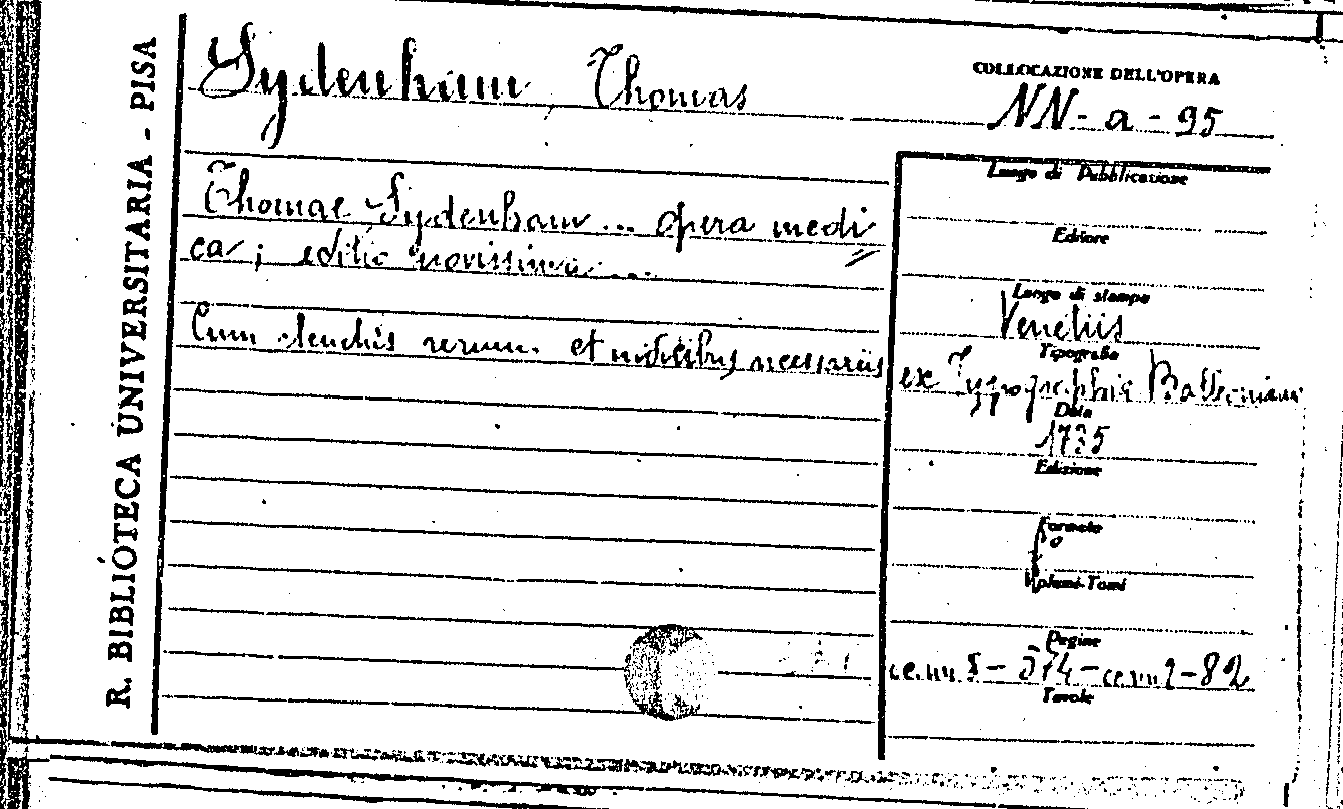 R. BIBLIOTECA UNIVERSITARIA - PISA
Sydenham, Thomas
COLLOCAZIONE DELL'OPERA
NN-a-95
Thomae Sydenham ... opera medi
ca; editio novissima ...
Cum elenchis rerum et indicibus necessariis
Luogo di Pubblicazione
Editore
Luogo di stampa
Venetiis
Tipografia
ex Typographia Balleoniana
Data
1735
Edizione
Formato
fo
Volumi-Tomi
Pagine
574
82
Tavole